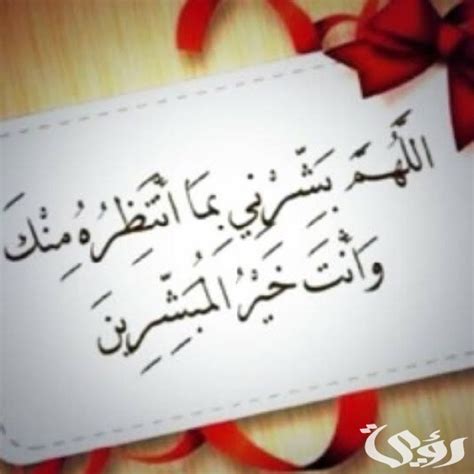 اللَّهُمَّ بَشِّرْنِي بِمَا أَنْتَظِرُهُ مِنْكَ
وَأَنْتَ خَيْرُ الْمُبَشِّرِينَ
رؤية